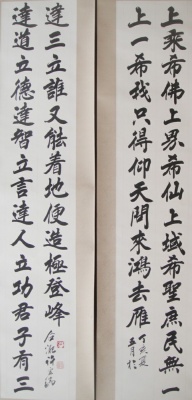 上乘希佛上界希仙上域希聖庶民無一
上一希我只得仰天問來鴻去雁
達道立德達智立言達人立功君子有三
達三立誰又能着地便造極登峰